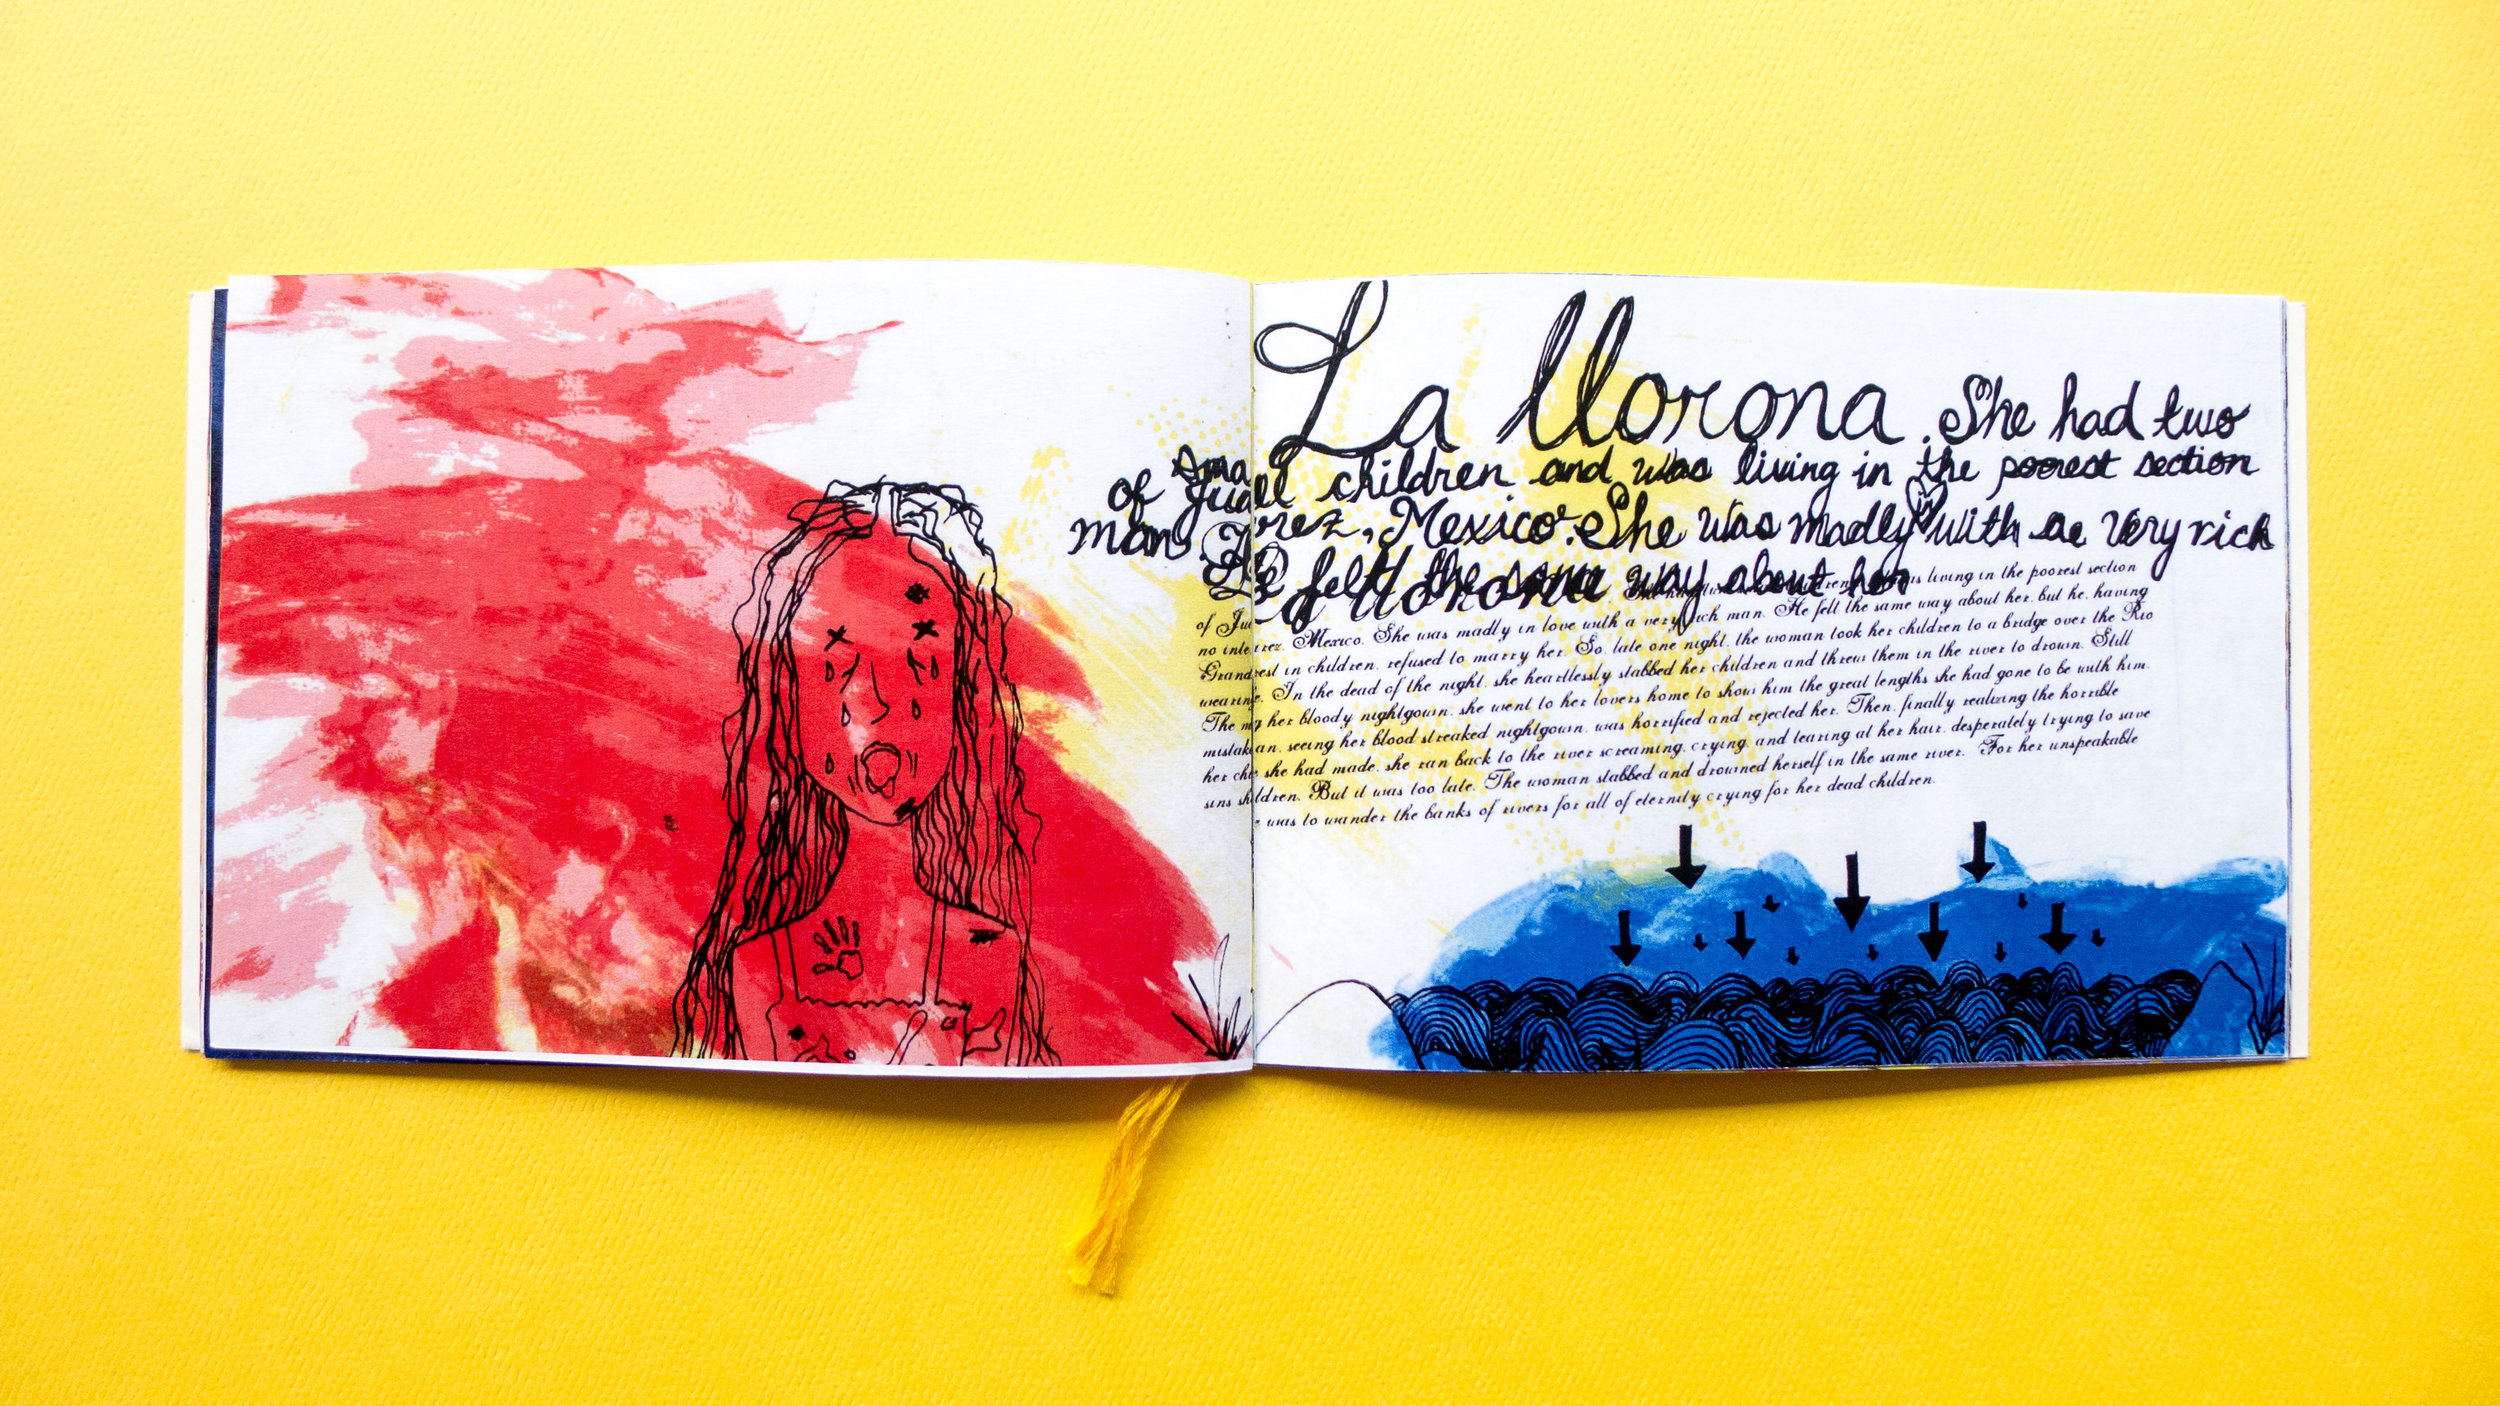 La llorona. She had two
small children and was living in the poorest section
of Juarez, Mexico. She was madly in with a very rich
man. He felt the same way about her
La Llorona She had two small children was living in the poorest section
of Juarez. Mexico. She was madly in love with a very rich man. He felt the same way about her, but he, having
no interest in children, refused to marry her. So, late one night, the woman took her children to a bridge over the Rio
Grande. In the dead of the night, she heartlessly stabbed her children and threw them in the river to drown. Still
wearing her bloody nightgown, she went to her lovers home to show him the great lengths she had gone to be with him.
The man, seeing her blood streaked nightgown, was horrified and rejected her. Then, finally realizing the horrible
mistake she had made, she ran back to the river screaming, crying, and tearing at her hair, desperately trying to save
her children. But it was too late. The woman stabbed and drowned herself in the same river. For her unspeakable
sins she was to wander the banks of rivers for all of eternity crying for her dead children.